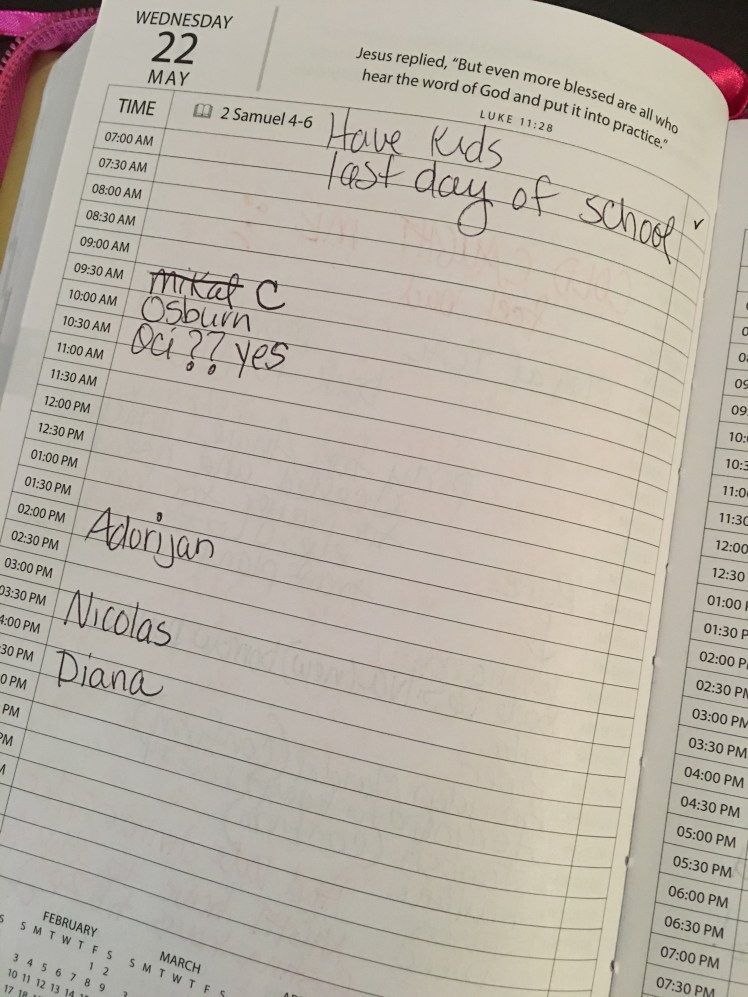 WEDNESDAY
22
MAY
Jesus replied, “But even more blessed are all who
hear the word of God and put it into practice.”
LUKE 11:28
TIME
2 Samuel 4-6
Have Kids
last day of school
07:00 AM
07:30 AM
08:00 AM
08:30 AM
09:00 AM
09:30 AM
Mikal C
10:00 AM
Osburn
10:30 AM
Oci ?? yes
11:00 AM
11:30 AM
12:00 PM
12:30 PM
01:00 PM
01:30 PM
02:00 PM
Adorijan
02:30 PM
03:00 PM
03:30 PM
Nicolas
4:00 PM
30 PM
Diana
0 PM
PM
PM
FEBRUARY
S M T W T F S
1 2
3 4 5 6 7 8 9
10 11 12 13 14
17 18
MARCH
S M T W T F S
09:
10:
10:3
11:0
11:30
12:00
12:30
01:00
01:30 P
02:00 P
02:30 PM
03:00 PM
03:30 PM
04:00 PM
04:30 PM
05:00 PM
05:30 PM
06:00 PM
06:30 PM
07:00 PM
07:30 PM